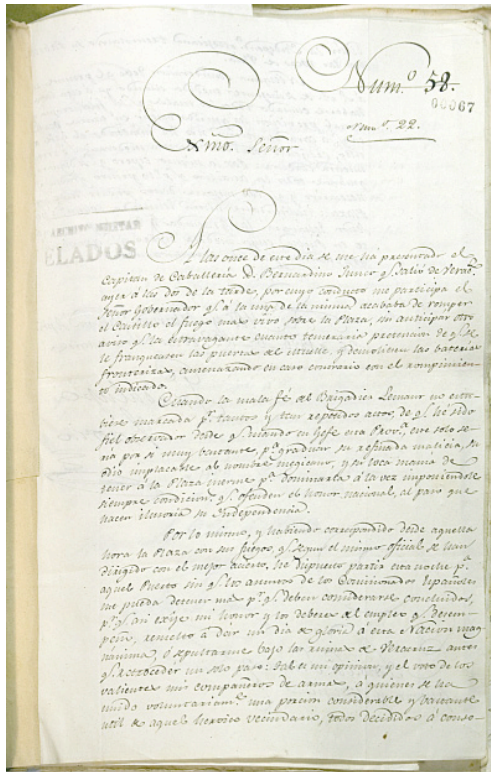 Num.º 58.
00067
Num.º 22.
Exmô. Señor
ARCHIVO MILITAR
ELADOS
A las once de este dia se me ha presentado el
Capitan de Caballeria D. Bernardino Junco q.e salió de Verac.z
ayer á las dos de la tarde, por cuyo conducto me participa el
Señor Gobernador q.e á la una de la misma acababa de romper
el Castillo el fuego mas vivo sobre la Plaza, sin anticipar otro
aviso q.e la extravagante cuanto temeraria pretencion de q.e se
le franqueasen las puertas del muelle, y demoliesen las baterias
fronterizas, amenazando en caso contrario con el rompimien-
to indicado.
Cuando la mala fé del Brigadier Lemaur no estu-
biese marcada p.r tantos y tan repetidos actos, de q.e he sido
fiel observador desde q.e mando en Gefe esta Prov.a, este solo se-
ria por si muy bastante, p.a graduar su refinada malicia, su
odio implacable al nombre megicano, y su loca mania de
tener á la Plaza inerme p.a dominarla á la vez imponiendole
siempre condicion.s q.e ofenden el honor nacional, al paso que
hacen ilusoria su Independencia.
Por lo mismo, y habiendo correspondido desde aquella
hora la Plaza con sus fuegos, q.e segun el mismo oficial se han
dirigido con el mejor acierto, he dispuesto partir esta noche p.a
aquel Puerto sin q.e los asuntos de los Comisionados Españoles
me pueda detener mas p.r q.e deben considerarse concluidos,
p.r q.e asi exije mi honor y los deberes del empleo q.e desem-
peño, resuelto á dar un dia de gloria á esta Nacion mag-
nánima, ó sepultarme bajo las ruinas de Veracruz antes
q.e retroceder un solo paso: tal es mi opinion, y el voto de los
valientes mis compañeros de armas, á quienes se ha
unido voluntariam.te una porcion considerable y bastante
util de aquel heroico vecindario, todos decididos á conse-